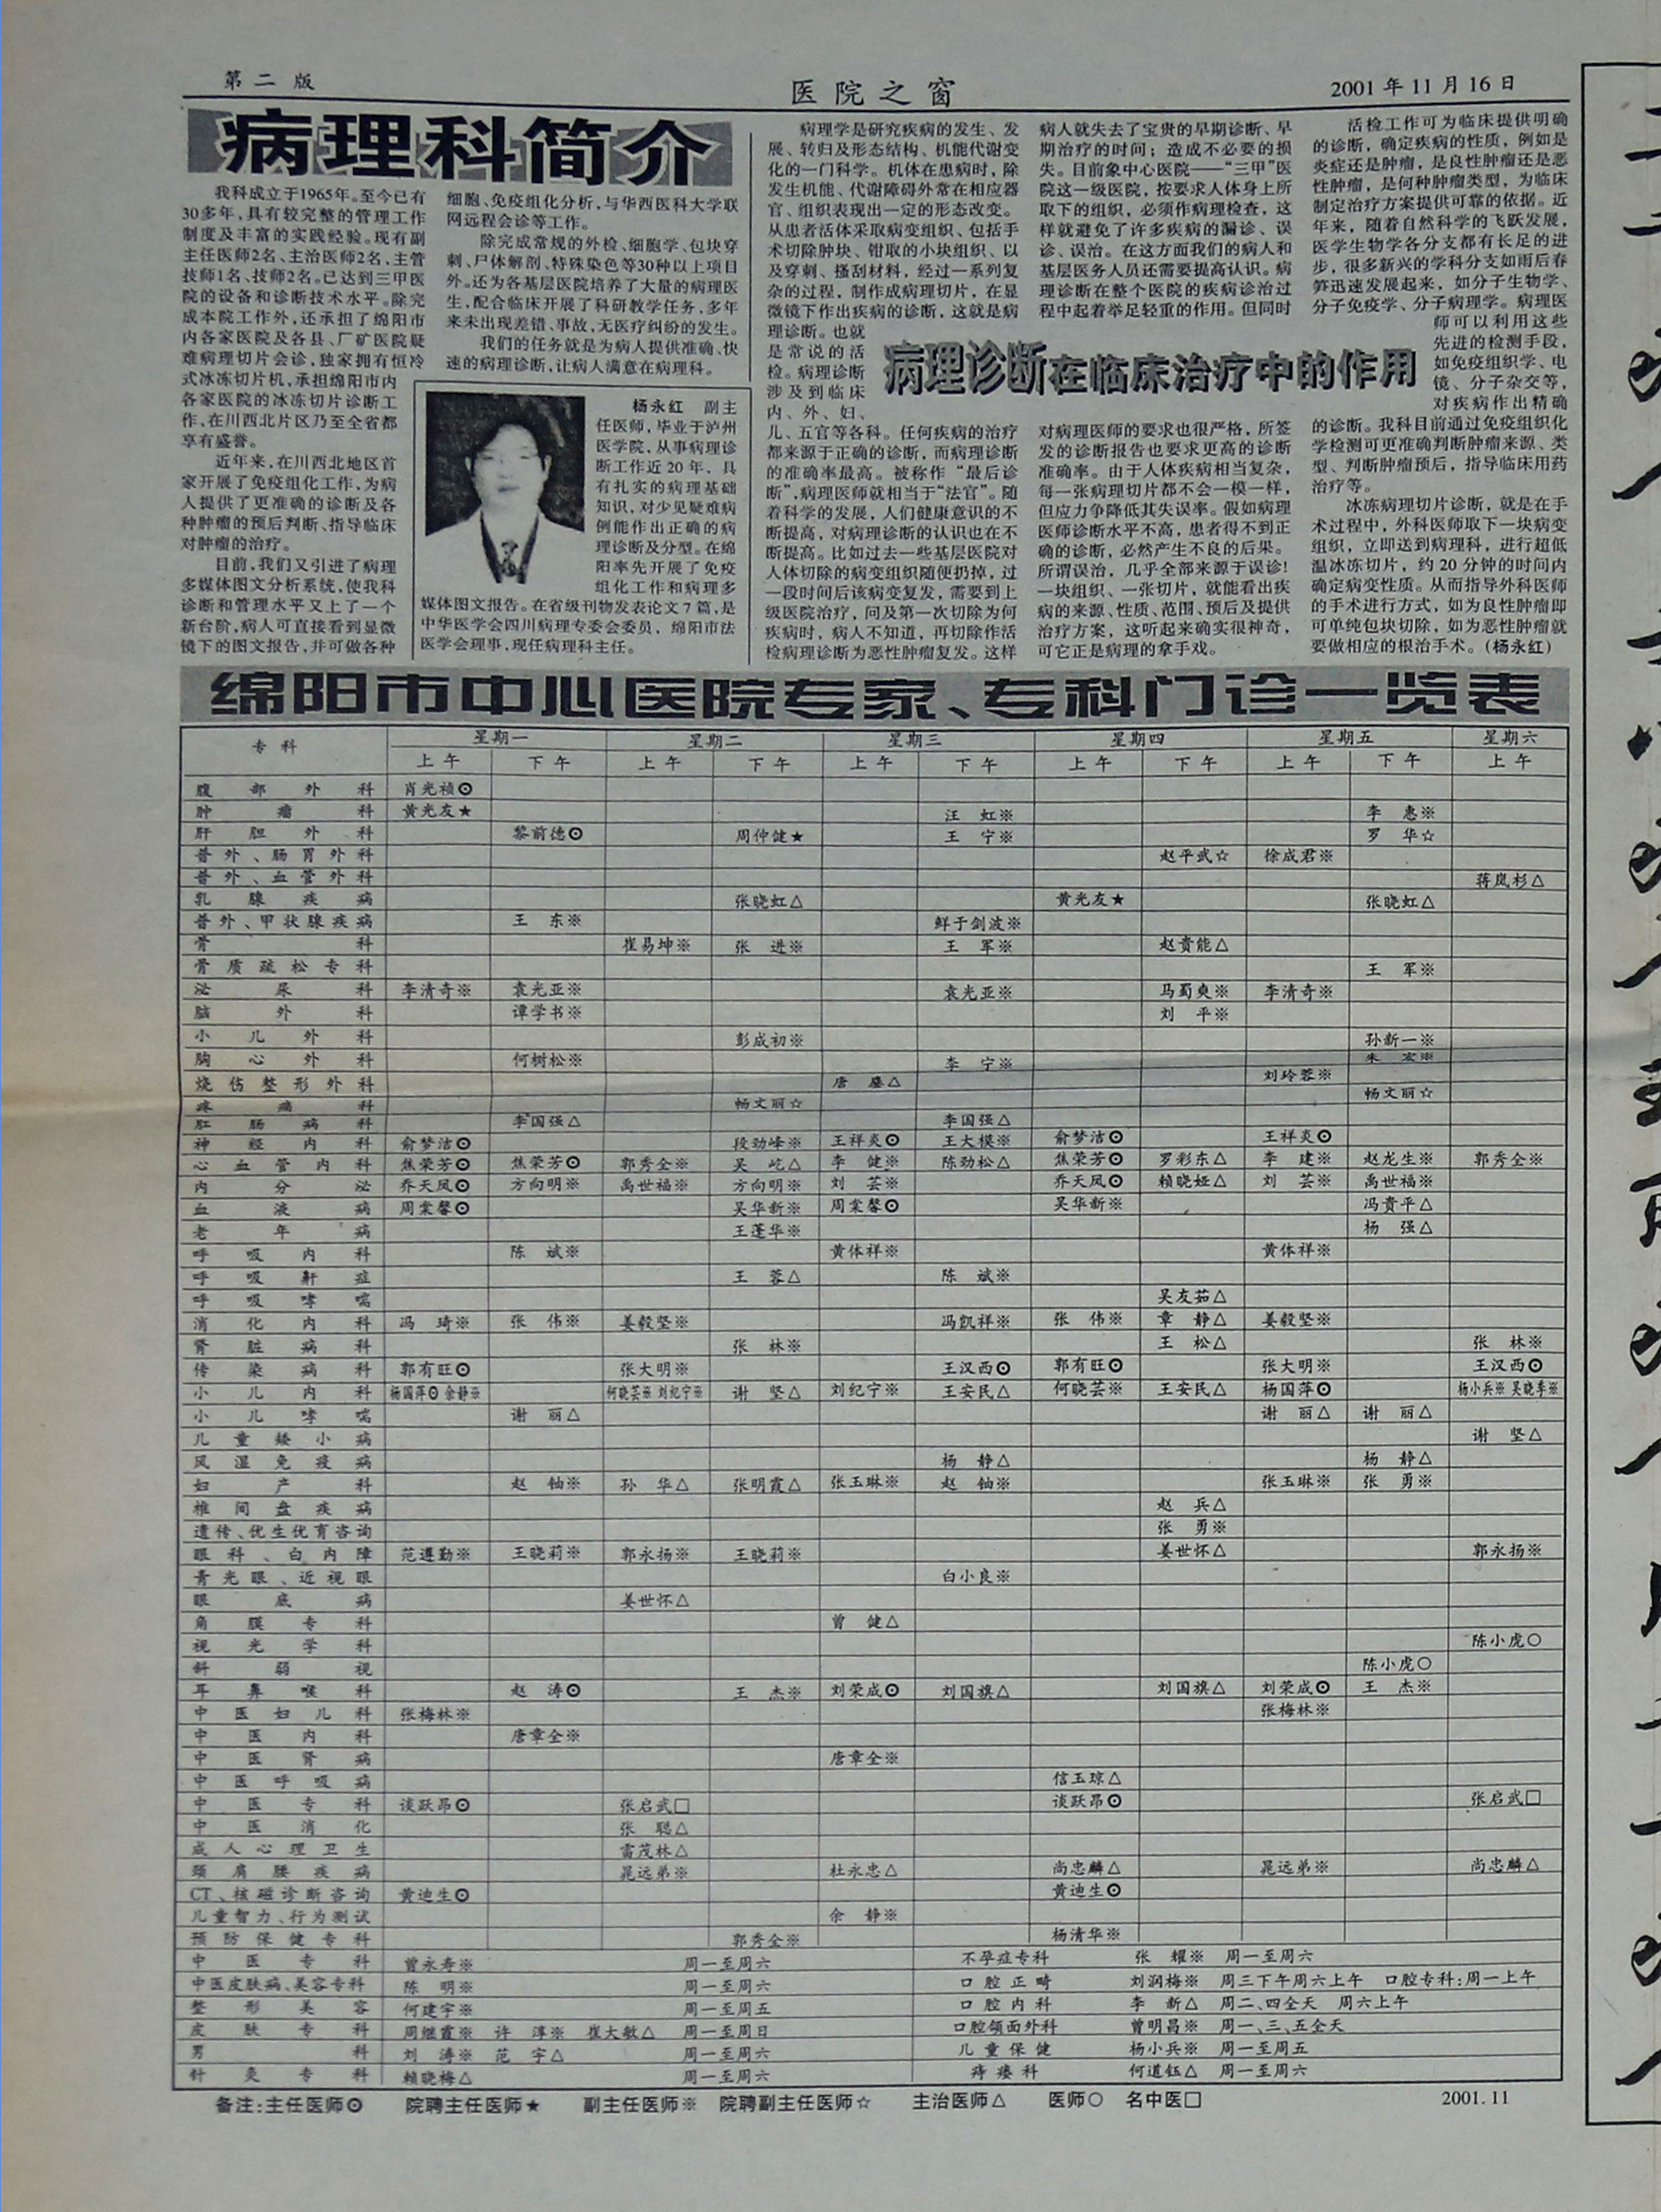 第二版
医院之窗
2001年11月16日
病理科简介
我科成立于1965年。至今已有
30多年,具有较完整的管理工作
制度及丰富的实践经验。现有副
主任医师2名、主治医师2名,主管
技师1名、技师2名。已达到三甲医
院的设备和诊断技术水平。除完
成本院工作外,还承担了绵阳市
内各家医院及各县、厂矿医院疑
难病理切片会诊,独家拥有恒冷
式冰冻切片机,承担绵阳市内
各家医院的冰冻切片诊断工
作,在川西北片区乃至全省都
享有盛誉。
近年来,在川西北地区首
家开展了免疫组化工作,为病
人提供了更准确的诊断及各
种肿瘤的预后判断、指导临床
对肿瘤的治疗。
目前,我们又引进了病理
多媒体图文分析系统,使我科
诊断和管理水平又上了一个
新台阶,病人可直接看到显微
镜下的图文报告,并可做各种
细胞、免疫组化分析,与华西医科大学联
网远程会诊等工作。
除完成常规的外检、细胞学、包块穿
刺、尸体解剖、特殊染色等30种以上项目
外。还为各基层医院培养了大量的病理医
生,配合临床开展了科研教学任务,多年
来未出现差错、事故,无医疗纠纷的发生。
我们的任务就是为病人提供准确、快
速的病理诊断,让病人满意在病理科。
杨永红 副主
任医师,毕业于泸州
医学院,从事病理诊
断工作近20年,具
有扎实的病理基础
知识,对少见疑难病
例能作出正确的病
理诊断及分型。在绵
阳率先开展了免疫
组化工作和病理多
媒体图文报告。在省级刊物发表论文7篇,是
中华医学会四川病理专委会委员,绵阳市法
医学会理事,现任病理科主任。
病理学是研究疾病的发生、发
展、转归及形态结构、机能代谢变
化的一门科学。机体在患病时,除
发生机能、代谢障碍外常在相应器
官、组织表现出一定的形态改变。
从患者活体采取病变组织、包括手
术切除肿块、钳取的小块组织、以
及穿刺、搔刮材料,经过一系列复
杂的过程,制作成病理切片,在显
微镜下作出疾病的诊断,这就是病
理诊断。也就
是常说的活
检。病理诊断
涉及到临床
内、外、妇、
儿、五官等各科。任何疾病的治疗
都来源于正确的诊断,而病理诊断
的准确率最高。被称作“最后诊
断”,病理医师就相当于“法官”。随
着科学的发展,人们健康意识的不
断提高,对病理诊断的认识也在不
断提高。比如过去一些基层医院对
人体切除的病变组织随便扔掉,过
一段时间后该病变复发,需要到上
级医院治疗,问及第一次切除为何
疾病时,病人不知道,再切除作活
检病理诊断为恶性肿瘤复发。这样
病人就失去了宝贵的早期诊断、早
期治疗的时间;造成不必要的损
失。目前象中心医院——“三甲”医
院这一级医院,按要求人体身上所
取下的组织,必须作病理检查,这
样就避免了许多疾病的漏诊、误
诊、误治。在这方面我们的病人和
基层医务人员还需要提高认识。病
理诊断在整个医院的疾病诊治过
程中起着举足轻重的作用。但同时
病理诊断在临床治疗中的作用
对病理医师的要求也很严格,所签
发的诊断报告也要求更高的诊断
准确率。由于人体疾病相当复杂,
每一张病理切片都不会一模一样,
但应力争降低其失误率。假如病理
医师诊断水平不高,患者得不到正
确的诊断,必然产生不良的后果。
所谓误治,几乎全部来源于误诊!
一块组织、一张切片,就能看出疾
病的来源、性质、范围、预后及提供
治疗方案,这听起来确实很神奇,
可它正是病理的拿手戏。
活检工作可为临床提供明确
的诊断,确定疾病的性质,例如是
炎症还是肿瘤,是良性肿瘤还是恶
性肿瘤,是何种肿瘤类型,为临床
制定治疗方案提供可靠的依据。近
年来,随着自然科学的飞跃发展,
医学生物学各分支都有长足的进
步,很多新兴的学科分支如雨后春
笋迅速发展起来,如分子生物学、
分子免疫学、分子病理学。病理医
师可以利用这些
先进的检测手段,
如免疫组织学、电
镜、分子杂交等,
对疾病作出精确
的诊断。我科目前通过免疫组织化
学检测可更准确判断肿瘤来源、类
型、判断肿瘤预后,指导临床用药
治疗等。
冰冻病理切片诊断,就是在手
术过程中,外科医师取下一块病变
组织,立即送到病理科,进行超低
温冰冻切片,约20分钟的时间内
确定病变性质。从而指导外科医师
的手术进行方式,如为良性肿瘤即
可单纯包块切除,如为恶性肿瘤就
要做相应的根治手术。(杨永红)
绵阳市中心医院专家、专科门诊一览表
专科 星期一 星期二 星期三 星期四 星期五 星期六
上午 下午 上午 下午 上午 下午 上午 下午 上午 下午 上午
腹部外科 肖光祯⊙
肿瘤科 黄光友★ 汪虹※ 李惠※
肝胆外科 黎前德⊙ 周仲健★ 王宁※ 罗华☆
普外、肠胃外科 赵平武☆ 徐成君※
普外、血管外科 蒋岚杉△
乳腺疾病 张晓虹△ 黄光友★ 张晓虹△
普外、甲状腺疾病 王东※ 鲜于剑波※
骨科 崔易坤※ 张进※ 王军※ 赵贵能△
骨质疏松专科 王军※
泌尿科 李清奇※ 袁光亚※ 袁光亚※ 马蜀爽※ 李清奇※
脑外科 谭学书※ 刘平※
小儿外科 彭成初※ 孙新一※
胸心外科 何树松※ 李宁※ 朱宏※
烧伤整形外科 唐△ 刘玲蓉※
疼痛科 畅文丽☆ 畅文丽☆
肛肠病科 李国强△ 李国强△
神经内科 俞梦洁⊙ 段劲峰※ 王祥炎⊙ 王大模※ 俞梦洁⊙ 王祥炎⊙
心血管内科 焦荣芳⊙ 焦荣芳⊙ 郭秀全※ 吴屹△ 李健※ 陈劲松△ 焦荣芳⊙ 罗彩东△ 李建※ 赵龙生※ 郭秀全※
内分泌 乔天凤⊙ 方向明※ 禹世福※ 方向明※ 刘芸※ 乔天凤⊙ 赖晓娅△ 刘芸※ 禹世福※
血液病 周棠馨⊙ 吴华新※ 周棠馨⊙ 吴华新※ 冯贵平△
老年病 王蓬华※ 杨强△
呼吸内科 陈斌※ 黄体祥※ 黄体祥※
呼吸鼾症 王蓉△ 陈斌※
呼吸哮喘 吴友茹△
消化内科 冯琦※ 张伟※ 姜毅坚※ 冯凯祥※ 张伟※ 章静△ 姜毅坚※
肾脏病科 张林※ 王松△ 张林※
传染病科 郭有旺⊙ 张大明※ 王汉西⊙ 郭有旺⊙ 张大明※ 王汉西⊙
小儿内科 杨国萍⊙ 余静※ 何晓芸※ 刘纪宁※ 谢坚△ 刘纪宁※ 王安民△ 何晓芸※ 王安民△ 杨国萍⊙ 杨小兵※ 吴晓季※
小儿哮喘 谢丽△ 谢丽△ 谢丽△
儿童矮小病 谢坚△
风湿免疫病 杨静△ 杨静△
妇产科 赵铀※ 孙华△ 张明霞△ 张玉琳※ 赵铀※ 张玉琳※ 张勇※
椎间盘疾病 赵兵△
遗传、优生优育咨询 张勇※
眼科、白内障 范遵勤※ 王晓莉※ 郭永扬※ 王晓莉※ 姜世怀△ 郭永扬※
青光眼、近视眼 白小良※
眼底病 姜世怀△
角膜专科 曾健△
视光学科 陈小虎○
斜弱视 陈小虎○
耳鼻喉科 赵涛⊙ 王杰※ 刘荣成⊙ 刘国旗△ 刘国旗△ 刘荣成⊙ 王杰※
中医妇儿科 张梅林※ 张梅林※
中医内科 唐章全※
中医肾病 唐章全※
中医呼吸病 信玉琼△
中医专科 谈跃昂⊙ 张启武□ 谈跃昂⊙ 张启武□
中医消化 张聪△
成人心理卫生 雷茂林△
颈肩腰疾病 晁远弟※ 杜永忠△ 尚忠麟△ 晁远弟※ 尚忠麟△
CT、核磁诊断咨询 黄迪生⊙ 黄迪生⊙
儿童智力、行为测试 余静※
预防保健专科 郭秀全※ 杨清华※
中医专科 曾永寿※ 周一至周六 不孕症专科 张耀※ 周一至周六
中医皮肤病、美容专科 陈明※ 周一至周六 口腔正畸 刘润梅※ 周三下午周六上午 口腔专科:周一上午
整形美容 何建宇※ 周一至周五 口腔内科 李新△ 周二、四全天 周六上午
皮肤专科 周继霞※ 许淳※ 崔大敏△ 周一至周日 口腔颌面外科 曾明昌※ 周一、三、五全天
男科 刘涛※ 范宇△ 周一至周六 儿童保健 杨小兵※ 周一至周五
针灸专科 赖晓梅△ 周一至周六 痔瘘科 何道钰△ 周一至周六
备注:主任医师⊙ 院聘主任医师★ 副主任医师※ 院聘副主任医师☆ 主治医师△ 医师○ 名中医□ 2001.11